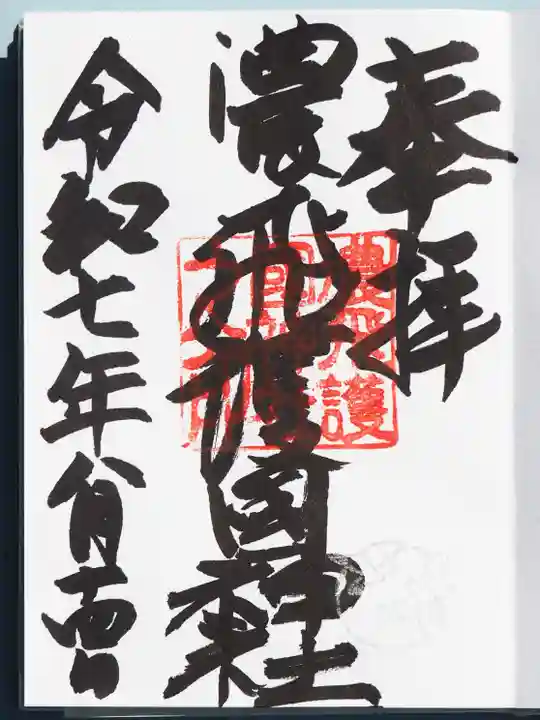 奉拝
濃飛護國神社
令和七年八月